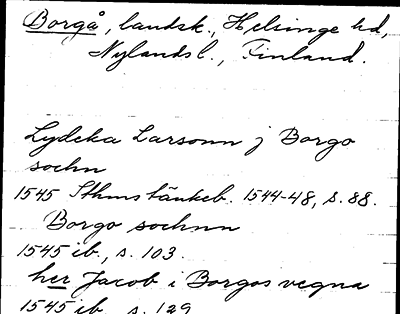 Borgå, landsk., Helsinge hd,
Nylands l., Finland.
Lydeka Larsonn j Borgo
sochn
1545 Sthms tänkeb. 1544-48, s. 88.
Borgo sochnn
1545 ib., s. 103.
her Jacob i Borgos vegna
1545 ib., s. 129